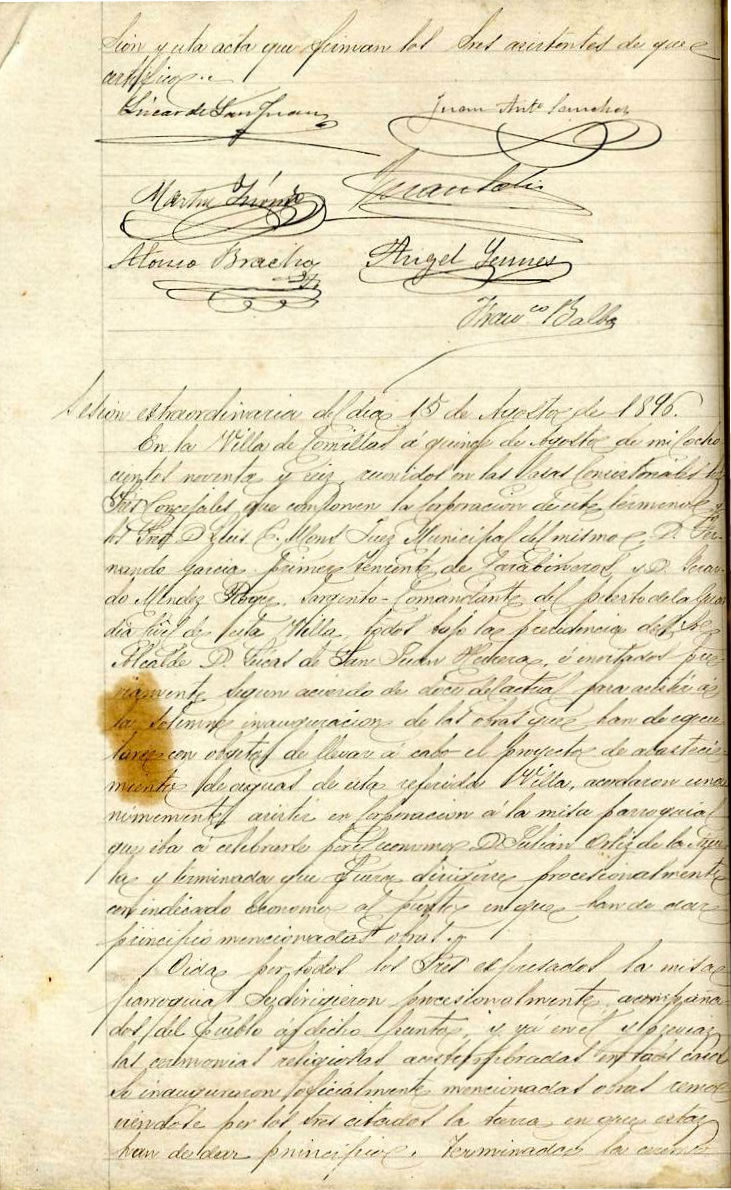 sion y esta acta que firman los Sres asistentes de que
certifico.
Lúcas de San Juan
Juan Anto Sanchez
Martin
Alonso Bracho
Angel
Franco Balbo
Sesion extraordinaria del dia 15 de Agosto de 1896.
En la Villa de Comillas á quince de Agosto de mil ocho
cientos noventa y seis, reunidos en las Casas Consistoriales los
Sres Concejales que componen la Corporacion de este término y
los Sres D. Luis C. Mons Juez Municipal del mismo, D. Fer
nando Garcia primer teniente de Carabineros, y D. Ricar
do Mendez Sargento-Comandante del puesto de la Guar
dia Civil de esta Villa, todos bajo la presidencia del Sr
Alcalde D. Lúcas de San Juan Herrera, é invitados pre
viamente segun acuerdo de doce del actual para asistir á
la solemne inauguracion de las obras que han de ejecu
tarse con objeto de llevar á cabo el proyecto de abasteci
miento de aguas de esta referida Villa, acordaron uná
nimemente asistir en Corporacion á la misa parroquial
que iba á celebrarse por el economo D. Julian Ortiz de la
y terminada que fuera dirigirse procesionalmente
con indicado Economo al punto en que han de dar
principio mencionadas obras.
Oida por todos los Sres expresados la misa
parroquial se dirigieron procesionalmente acompaña
dos del Pueblo á dicho punto, y yá en él y previas
las ceremonias religiosas acostumbradas en tales casos
se inauguraron oficialmente mencionadas obras remo
viéndose por los Sres citados la tierra en que estas
han de dar principio. Terminada la